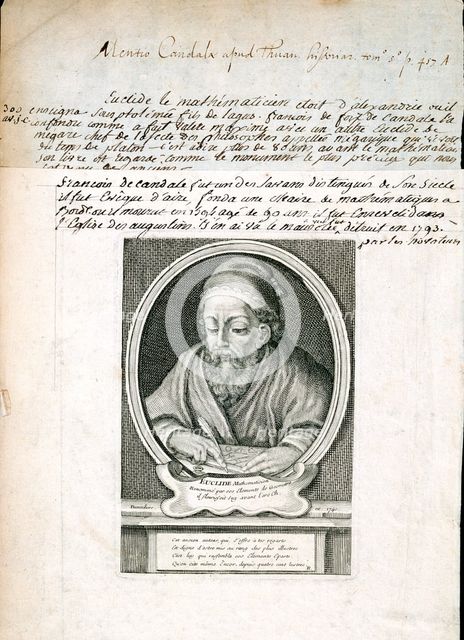 Mentio Candalæ apud Thuan. historiar. tom. 5° p. 457 A
Euclide le mathématicien étoit d'alexandrie ou il
300 av. J.C enseigna sous ptolémée fils de lagus. françois de foix de candale l'a
confondu comme a fait valere maxime avec un autre Euclide de
mégare chef de la secte des philosophes appellée mégarique qui vivoit
du tems de platon c'est a dire plus de 80 ans avant le mathématicien
son livre est regardé comme le monument le plus précieux qui nous
françois de candale fut un des savans distingués de son siecle
il fut Evêque d'aire, fonda une chaire de mathématiques a
Bordeaux il mourut en 1594 agé de 90 ans il fut enseveli dans
l'Eglise des augustins. J'en ai vû le mausolée détruit en 1793.
par les novateurs
EUCLIDE Mathématicien
Renommé par ses Elements de Geometrie
il fleurissoit 300 avant l'ere Ch.
ce 1740
Cet ancien auteur, qui s'offre à tes regards
Est digne d'estre mis au rang des plus illustres
C'est luy qui rassembla ces Elements Epars
Qu'on cite même Encor, depuis quatre cens lustres